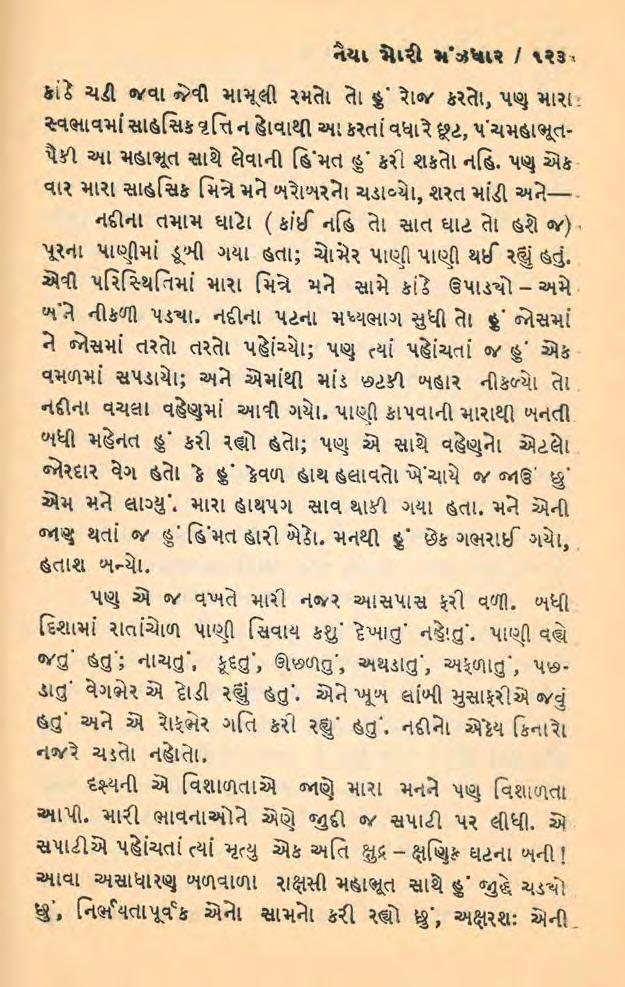 નૈયા મોરી મંઝધાર / ૧૨૩
કાંઠે ચડી જવા જેવી મામૂલી રમતો તો હું રોજ કરતો, પણ મારા
સ્વભાવમાં સાહસિક વૃત્તિ ન હોવાથી આ કરતાં વધારે છૂટ, પંચમહાભૂત-
પૈકી આ મહાભૂત સાથે લેવાની હિંમત હું કરી શકતો નહિ. પણ એક
વાર મારા સાહસિક મિત્રે મને બરોબરનો ચડાવ્યો, શરત માંડી અને—
નદીના તમામ ઘાટો ( કાંઈ નહિ તો સાત ઘાટ તો હશે જ )
પૂરના પાણીમાં ડૂબી ગયા હતા; ચોમેર પાણી પાણી થઈ રહ્યું હતું.
એવી પરિસ્થિતિમાં મારા મિત્રે મને સામે કાંઠે ઉપાડ્યો – અમે
બંને નીકળી પડ્યા. નદીના પટના મધ્યભાગ સુધી તો હું જોસમાં
ને જોસમાં તરતો તરતો પહોંચ્યો; પણ ત્યાં પહોંચતાં જ હું એક
વમળમાં સપડાયો; અને એમાંથી માંડ છટકી બહાર નીકળ્યો તો
નદીના વચલા વહેણમાં આવી ગયો. પાણી કાપવાની મારાથી બનતી
બધી મહેનત હું કરી રહ્યો હતો; પણ એ સાથે વહેણનો એટલો
જોરદાર વેગ હતો કે હું કેવળ હાથ હલાવતો ખેંચાયે જ જાઉં છું
એમ મને લાગ્યું. મારા હાથપગ સાવ થાકી ગયા હતા. મને એની
જાણ થતાં જ હું હિંમત હારી બેઠો. મનથી હું છેક ગભરાઈ ગયો,
હતાશ બન્યો.
પણ એ જ વખતે મારી નજર આસપાસ ફરી વળી. બધી
દિશામાં રાતાંચોળ પાણી સિવાય કશું દેખાતું નહોતું. પાણી વહ્યે
જતું હતું; નાચતું, કૂદતું, ઊછળતું, અથડાતું, અફળાતું, પછ-
ડાતું વેગભેર એ દોડી રહ્યું હતું. એને ખૂબ લાંબી મુસાફરીએ જવું
હતું અને એ રોફભેર ગતિ કરી રહ્યું હતું. નદીનો એકેય કિનારો
નજરે ચડતો નહોતો.
દૃશ્યની એ વિશાળતાએ જાણે મારા મનને પણ વિશાળતા
આપી. મારી ભાવનાઓને એણે જુદી જ સપાટી પર લીધી. એ
સપાટીએ પહોંચતાં ત્યાં મૃત્યુ એક અતિ ક્ષુદ્ર – ક્ષણિક ઘટના બની !
આવા અસાધારણ બળવાળા રાક્ષસી મહાભૂત સાથે હું જુદ્ધે ચડ્યો
છું, નિર્ભયતાપૂર્વક એનો સામનો કરી રહ્યો છું, અક્ષરશઃ એની